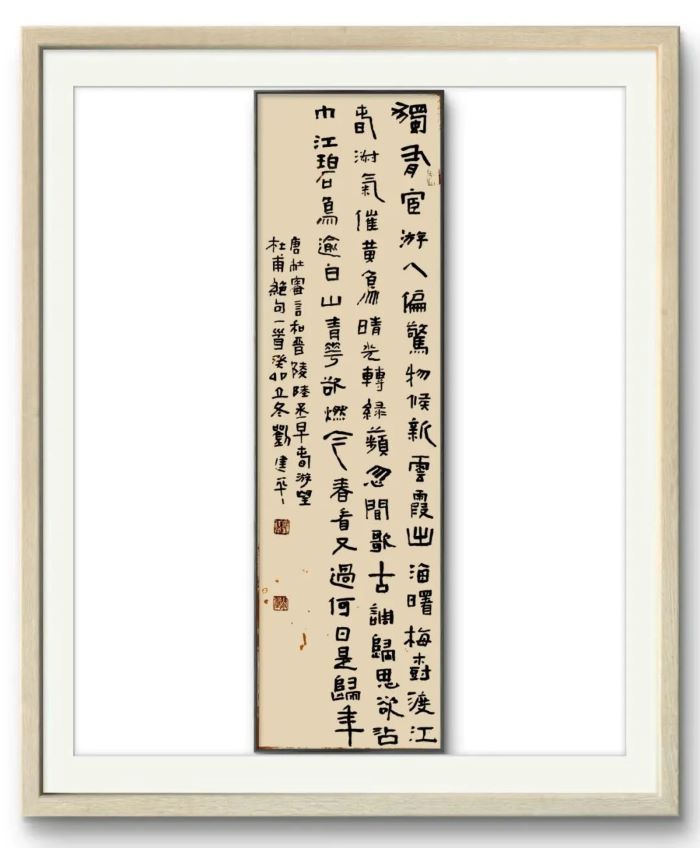 獨有宦游人偏驚物候新雲霞出海曙梅樹渡江
春淑氣催黄鳥晴光轉緑蘋忽聞歌古調歸思欲沾
巾江碧鳥逾白山青華欲燃今春看又過何日是歸年
唐杜審言和晉陵陸丞早春游望
杜甫絶句一首癸卯立冬劉建平